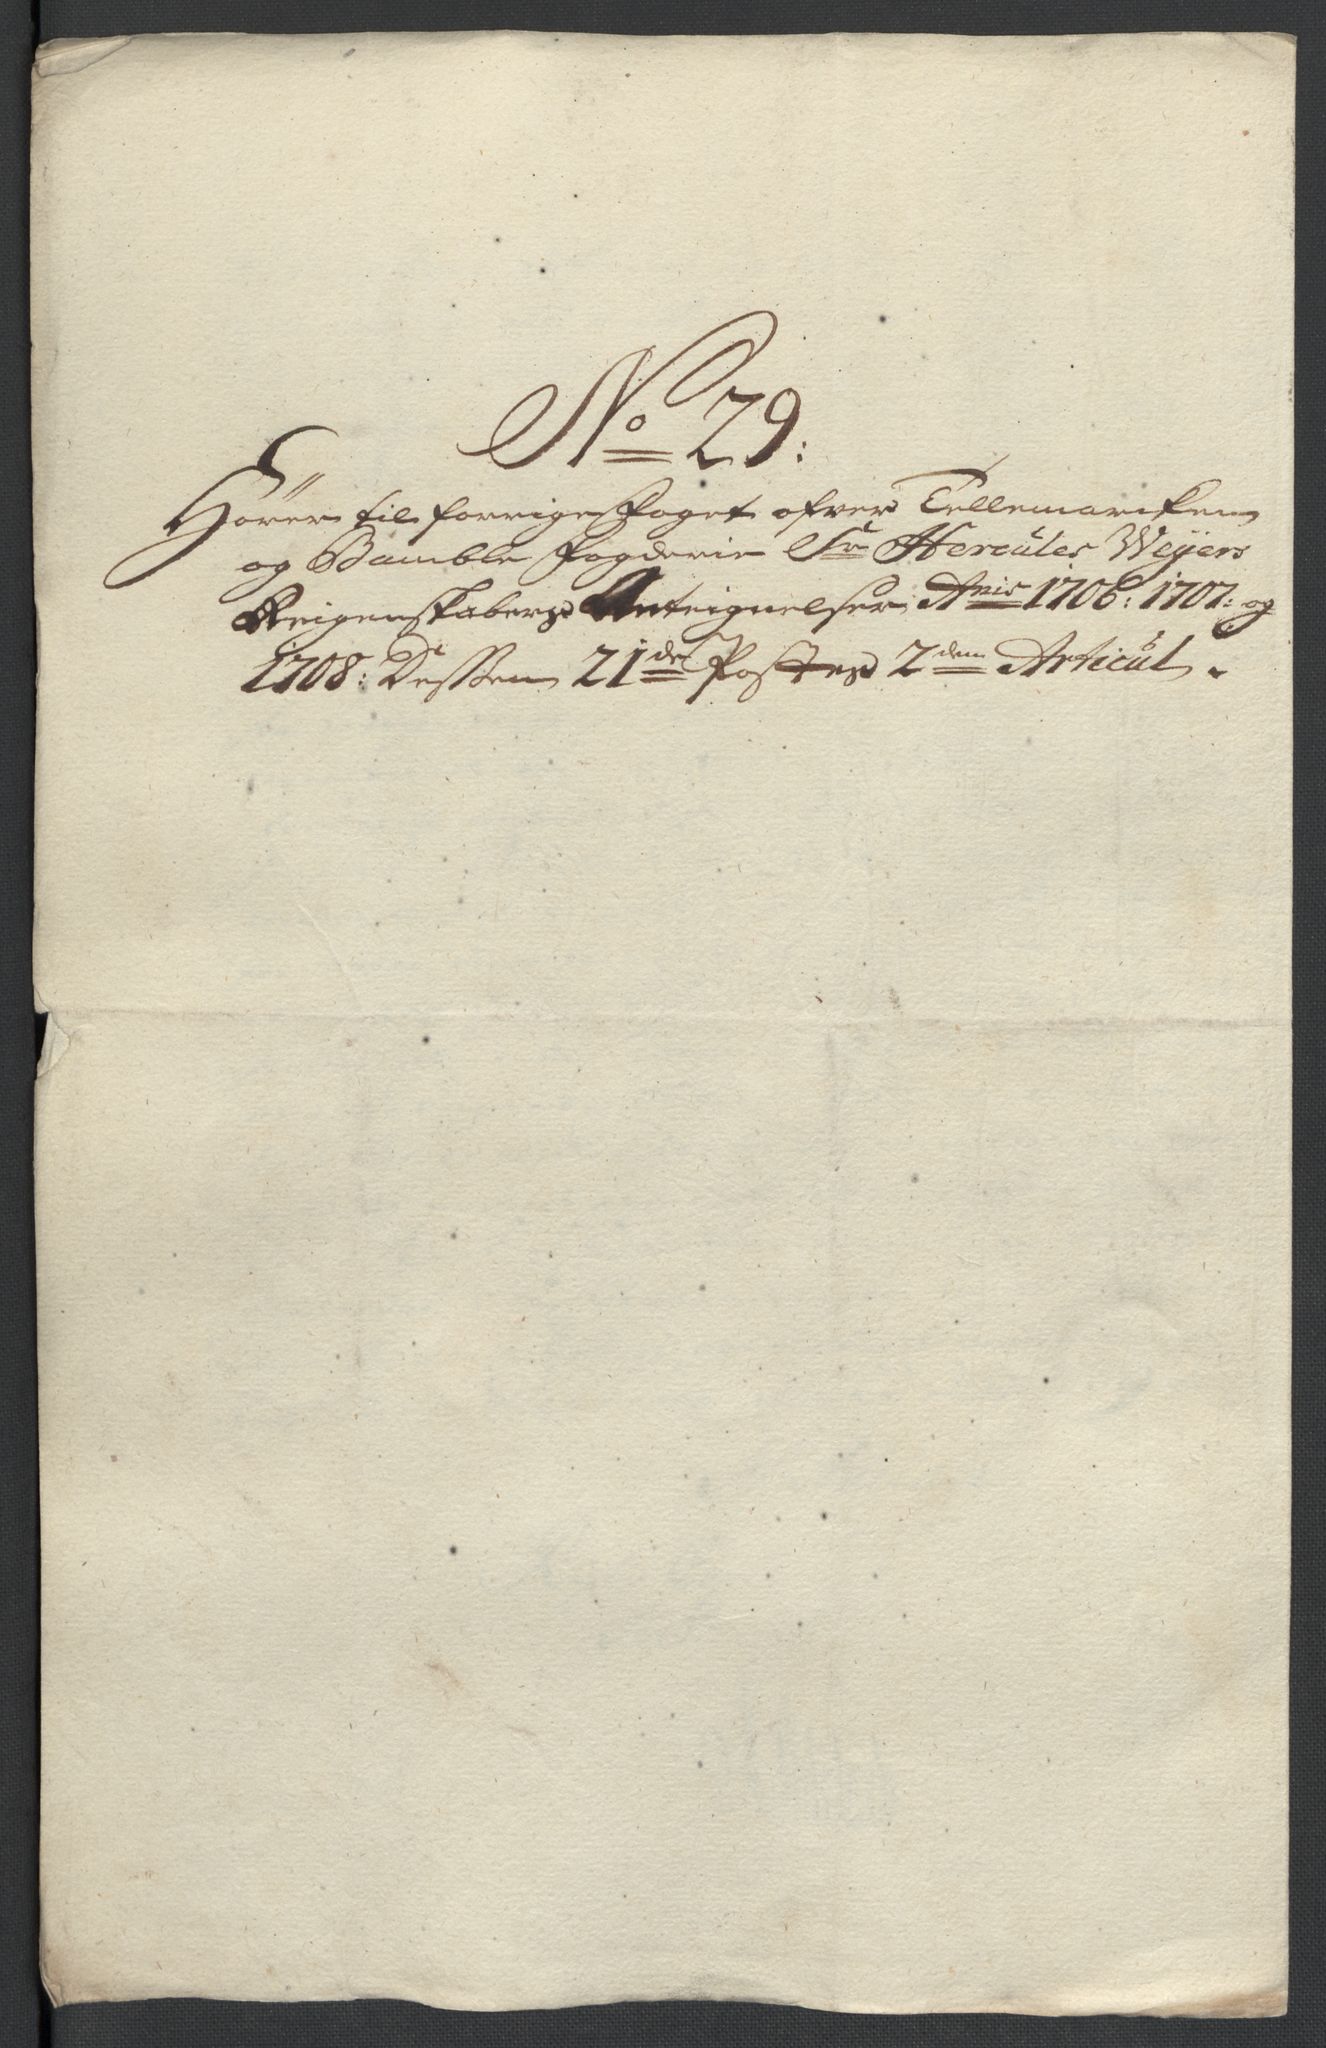 No 29:
Hörer til forrige Foget ofver Tellemarcken
og Bamble fogderie Sr Hercules Weyers
Reigenskabers Anteignelser Anis 1706: 1707: og
1708: Dessen 21de Postes 2den Articul.